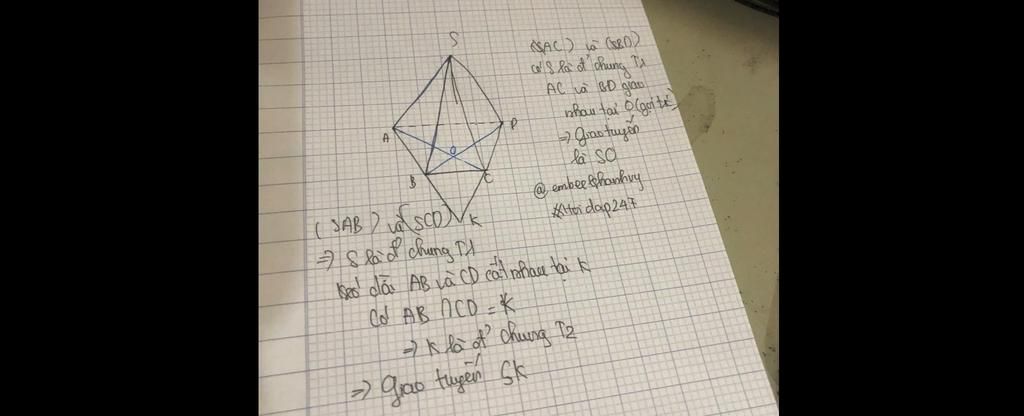 S
A
D
O
B
C
K
(SAC) và (SBD)
Có S là đ' chung T1
AC và BD giao
nhau tại O (gọi tế)
=> Giao tuyến
là SO
@embeekhanhvy
#Hoidap247
(SAB) và (SCD)
=> S là đ' chung T1
kéo dài AB và CD cắt nhau tại K
Có AB ∩ CD = K
=> K là đ' chung T2
=> Giao tuyến SK